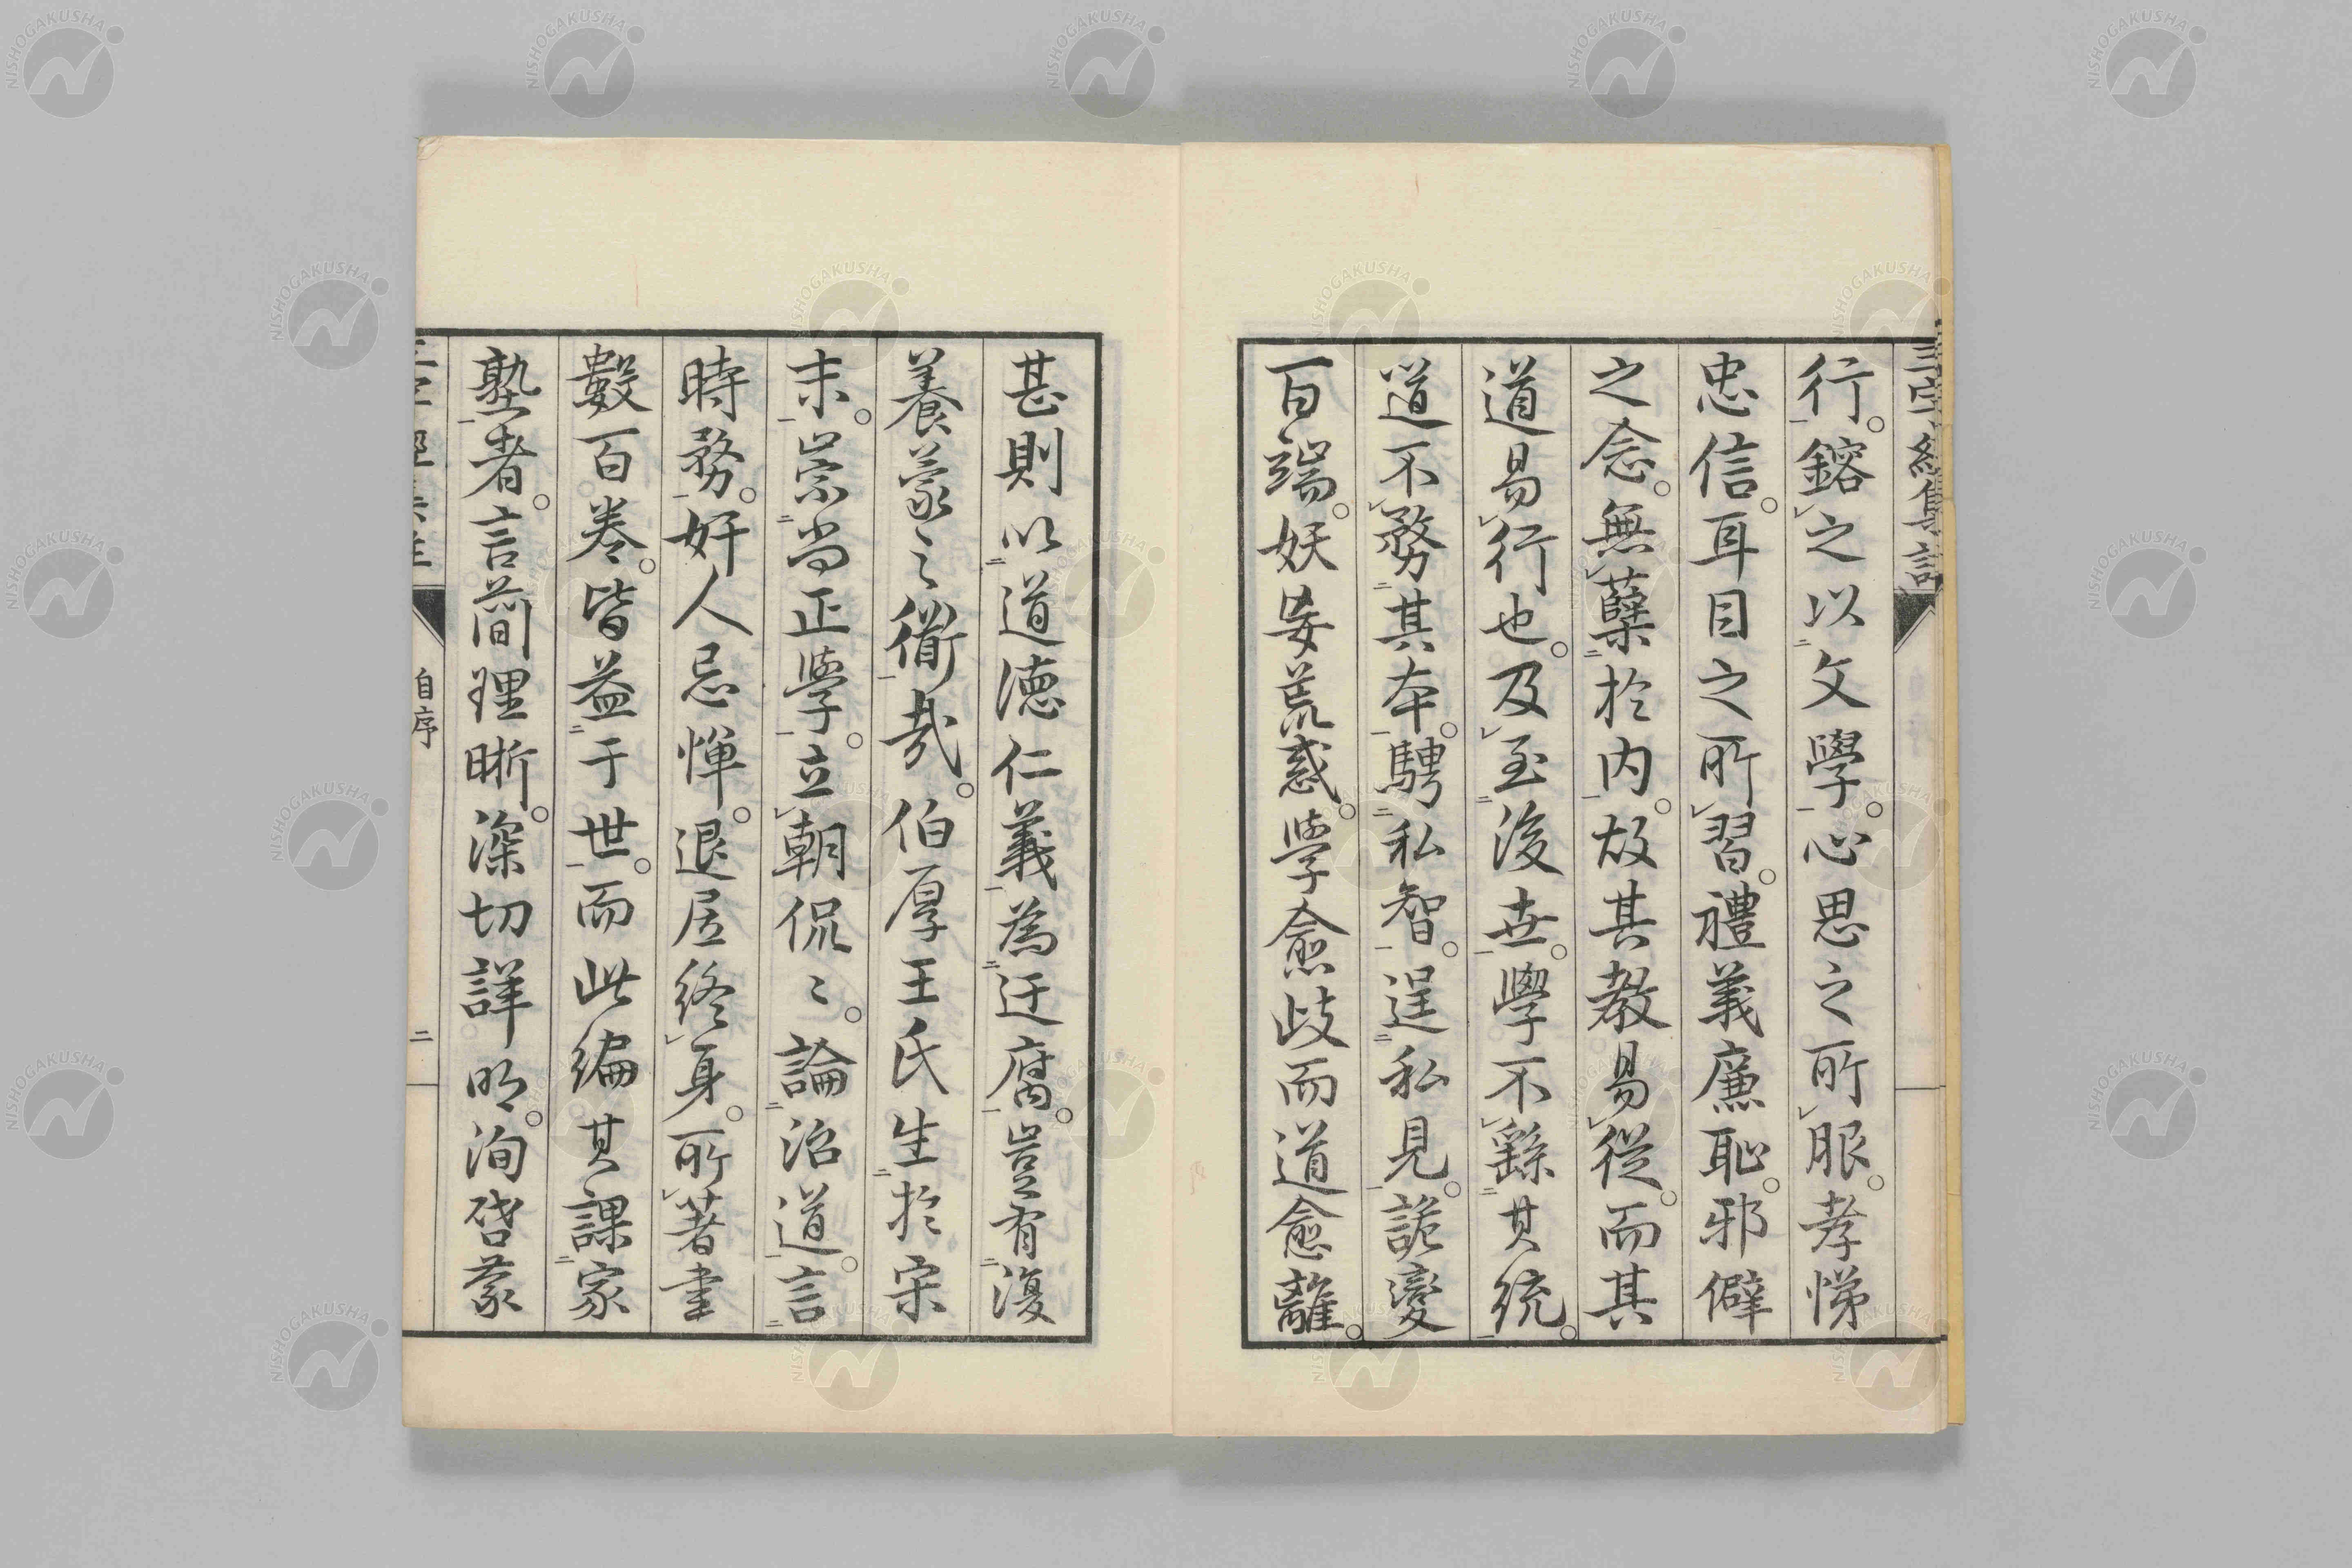 三字經集註
行。鎔之以文學。心思之所服。孝悌
忠信。耳目之所習。禮義廉恥。邪僻
之念。無蘖於内。故其教易從。而其
道易行也。及至後世。學不繇其統。
道不務其本。騁私智。逞私見。詭變
百端。妖妄荒惑。學愈歧而道愈離。
甚則以道德仁義為迂腐。豈有復
養蒙之術哉。伯厚王氏生於宋
末。崇尚正學。立朝侃〻。論治道。言
時務。奸人忌憚。退居終身。所著書
數百卷。皆益于世。而此編其課家
塾者。言簡理晰。深切詳明。洵啓蒙
自序
二
NISHOGAKUSHA